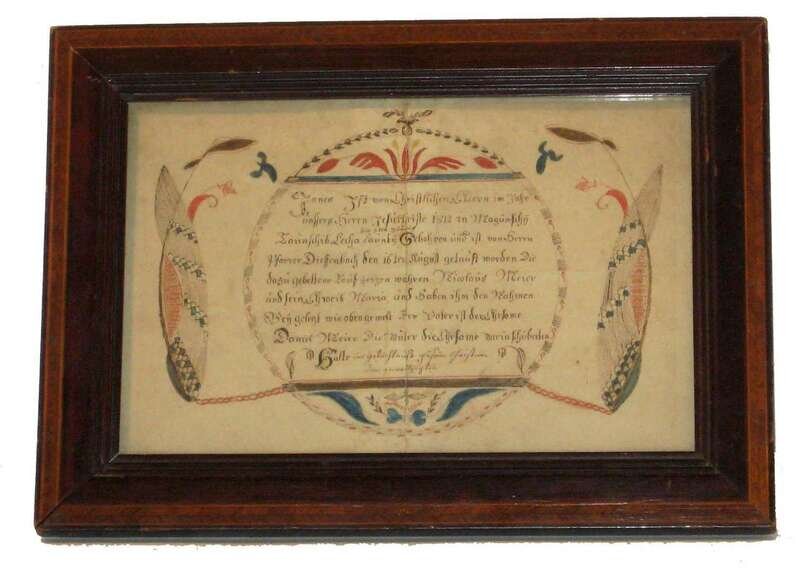 James Ist von Christlichen Eltern im Jahr
unsers Herrn Jesu Christe 1812 in Magunschy
Taunschib Lecha caunty Gebohren und ist von Herrn
Pfarrer Dieffenbach den 16ten August getauft worden Die
dazu gebettene Tauf zeugen wahren Nicolaus Meier
und sein Eheweib Maria und haben ihm den Nahmen
Bey gelegt wie oben gemelt Der Vater ist der Ehrsame
Daniel Meier Die Muter die Ehrsame Maria
Halte im gedächtnuß Jesum Christum
den